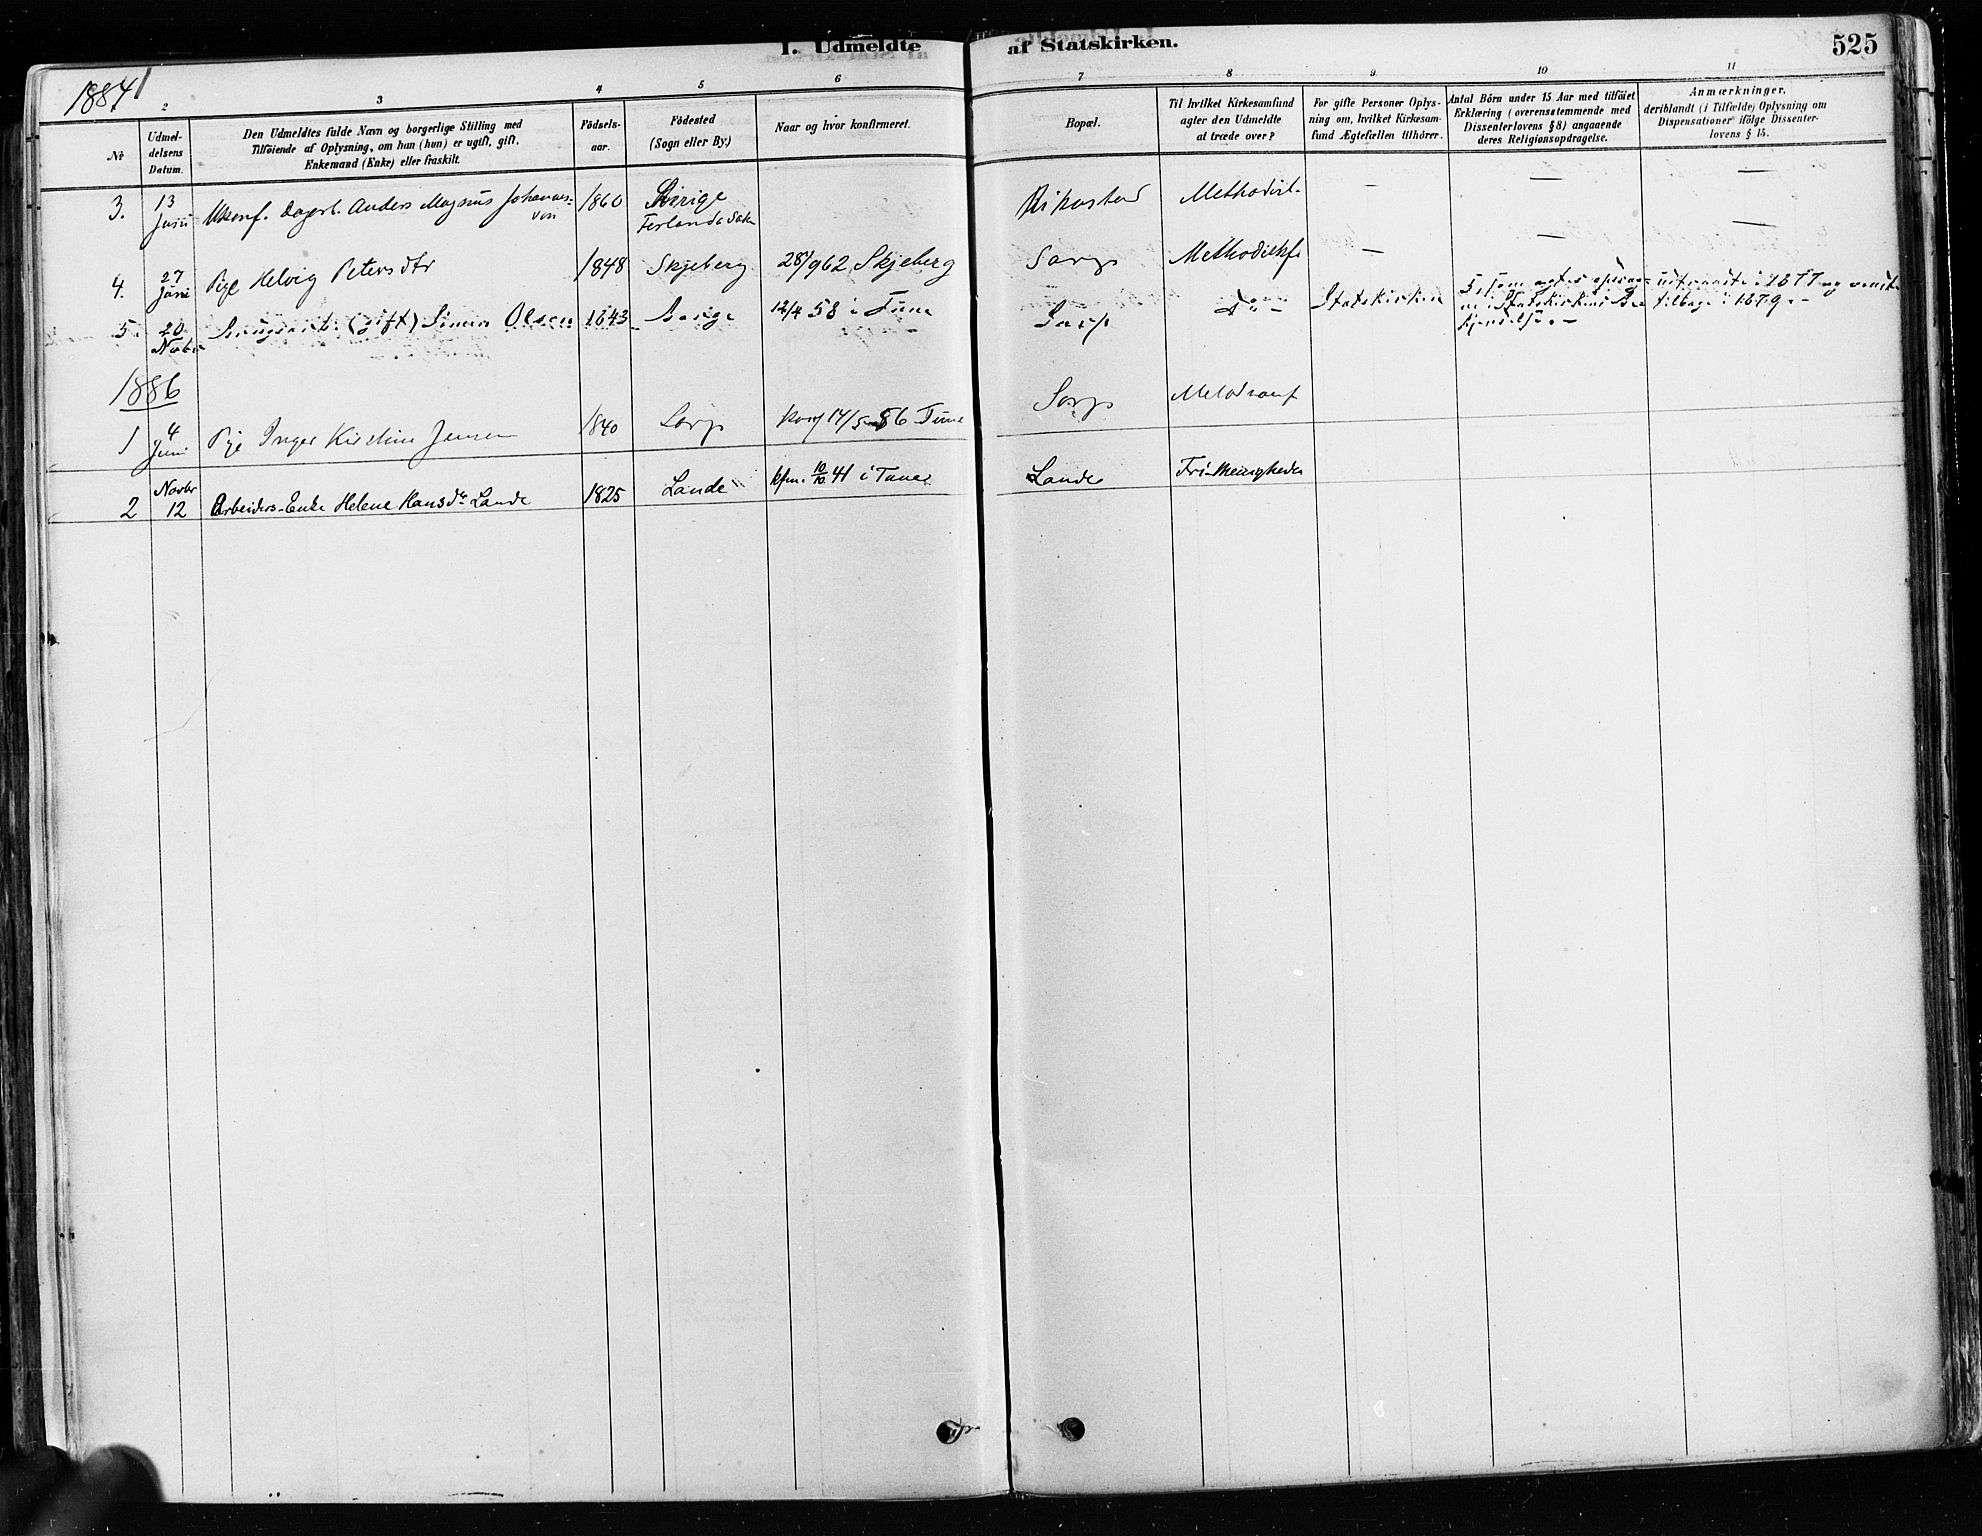 I. Udmeldte af Statskirken.
525
1884
2 3 4 5 6 7 8 9 10 11
№
Udmel-
delsens
Datum.
Den Udmeldtes fulde Navn og borgerlige Stilling med
Tilföiende af Oplysning, om han (hun) er ugift, gift.
Enkemand (Enke) eller fraskilt.
Födsels-
aar.
Födested
(Sogn eller By.)
Naar og hvor konfirmeret.
Bopæl.
Til hvilket Kirkesamfund
agter den Udmeldte
at træde over?
For gifte Personer Oplys-
ning om, hvilket Kirkesam-
fund Ægtefællen tilhörer.
Antal Börn under 15 Aar med tilföiet
Erklæring (overensstemmende med
Dissenterlovens § 8) angaaende
deres Religionsopdragelse.
Anmærkninger,
deriblandt (i Tilfælde) Oplysning om
Dispensationer ifölge Dissenter-
lovens § 15.
3. 13 Juni Anders Magnus Johannes- 1860 Methodist. — — —
son
4. 27 Juni Pige Helvig Petersdtr 1848 Skjeberg 28/9 62 Skjeberg Sarp — — —
5. 20 Novbr (gift) Simen Olsen 1843 12/4 58 i Tune Sarp Do Statskirken 5, som agtes 1877 og vendte
tilbage i 1879.
1886
1 4 Juni Pige Inger Kirstine Jensen 1840 Sarp konf 14/5 56 Tune Sarp
2 Novbr 12 Arbeiders-Enke Helene Hansdtr Lande 1825 Lande 10/10 41 i Tune Lande Fri-Menigheden